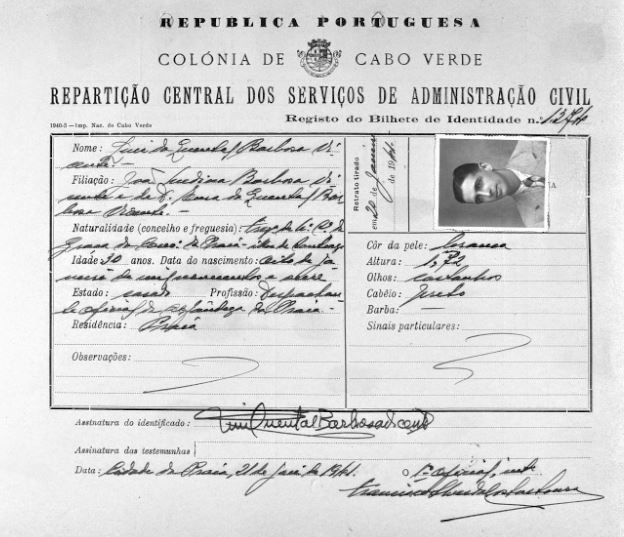 REPUBLICA PORTUGUESA
COLÓNIA DE CABO VERDE
REPARTIÇÃO CENTRAL DOS SERVIÇOS DE ADMINISTRAÇÃO CIVIL
1940-3—Imp. Nac. de Cabo Verde
Registo do Bilhete de Identidade n.º
Nome: Barbosa Vi-
cente.—
Filiação: João Barbosa Vi-
cente e de D.
bosa Vicente.—
Naturalidade (concelho e freguesia):
Graça da Praia - ilha de Santiago
Idade 30 anos. Data do nascimento: oito de Ja-
neiro de mil novecentos e
Estado: casado Profissão: Despachan-
te oficial da Alfândega da Praia.
Residência: Praia
Observações:
Retrato tirado
em 20 de Janeiro
de 1941.
Côr da pele: branca
Altura: 1,72
Olhos: castanhos
Cabêlo: preto
Barba: —
Sinais particulares:
Assinatura do identificado: Quental Barbosa Vicente
Assinatura das testemunhas
Data: Cidade da Praia, 21 de Jan. de 1941.
O 1.º oficial, int.
Francisco